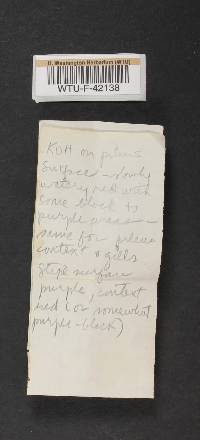 U. Washington Herbarium (WTU)
WTU-F-42138
KOH on pileus
surface - slowly
watery red with
some black to
purple areas -
same for pileus
context & gills
Stipe surface
purple, context
red (or somewhat
purple-black)